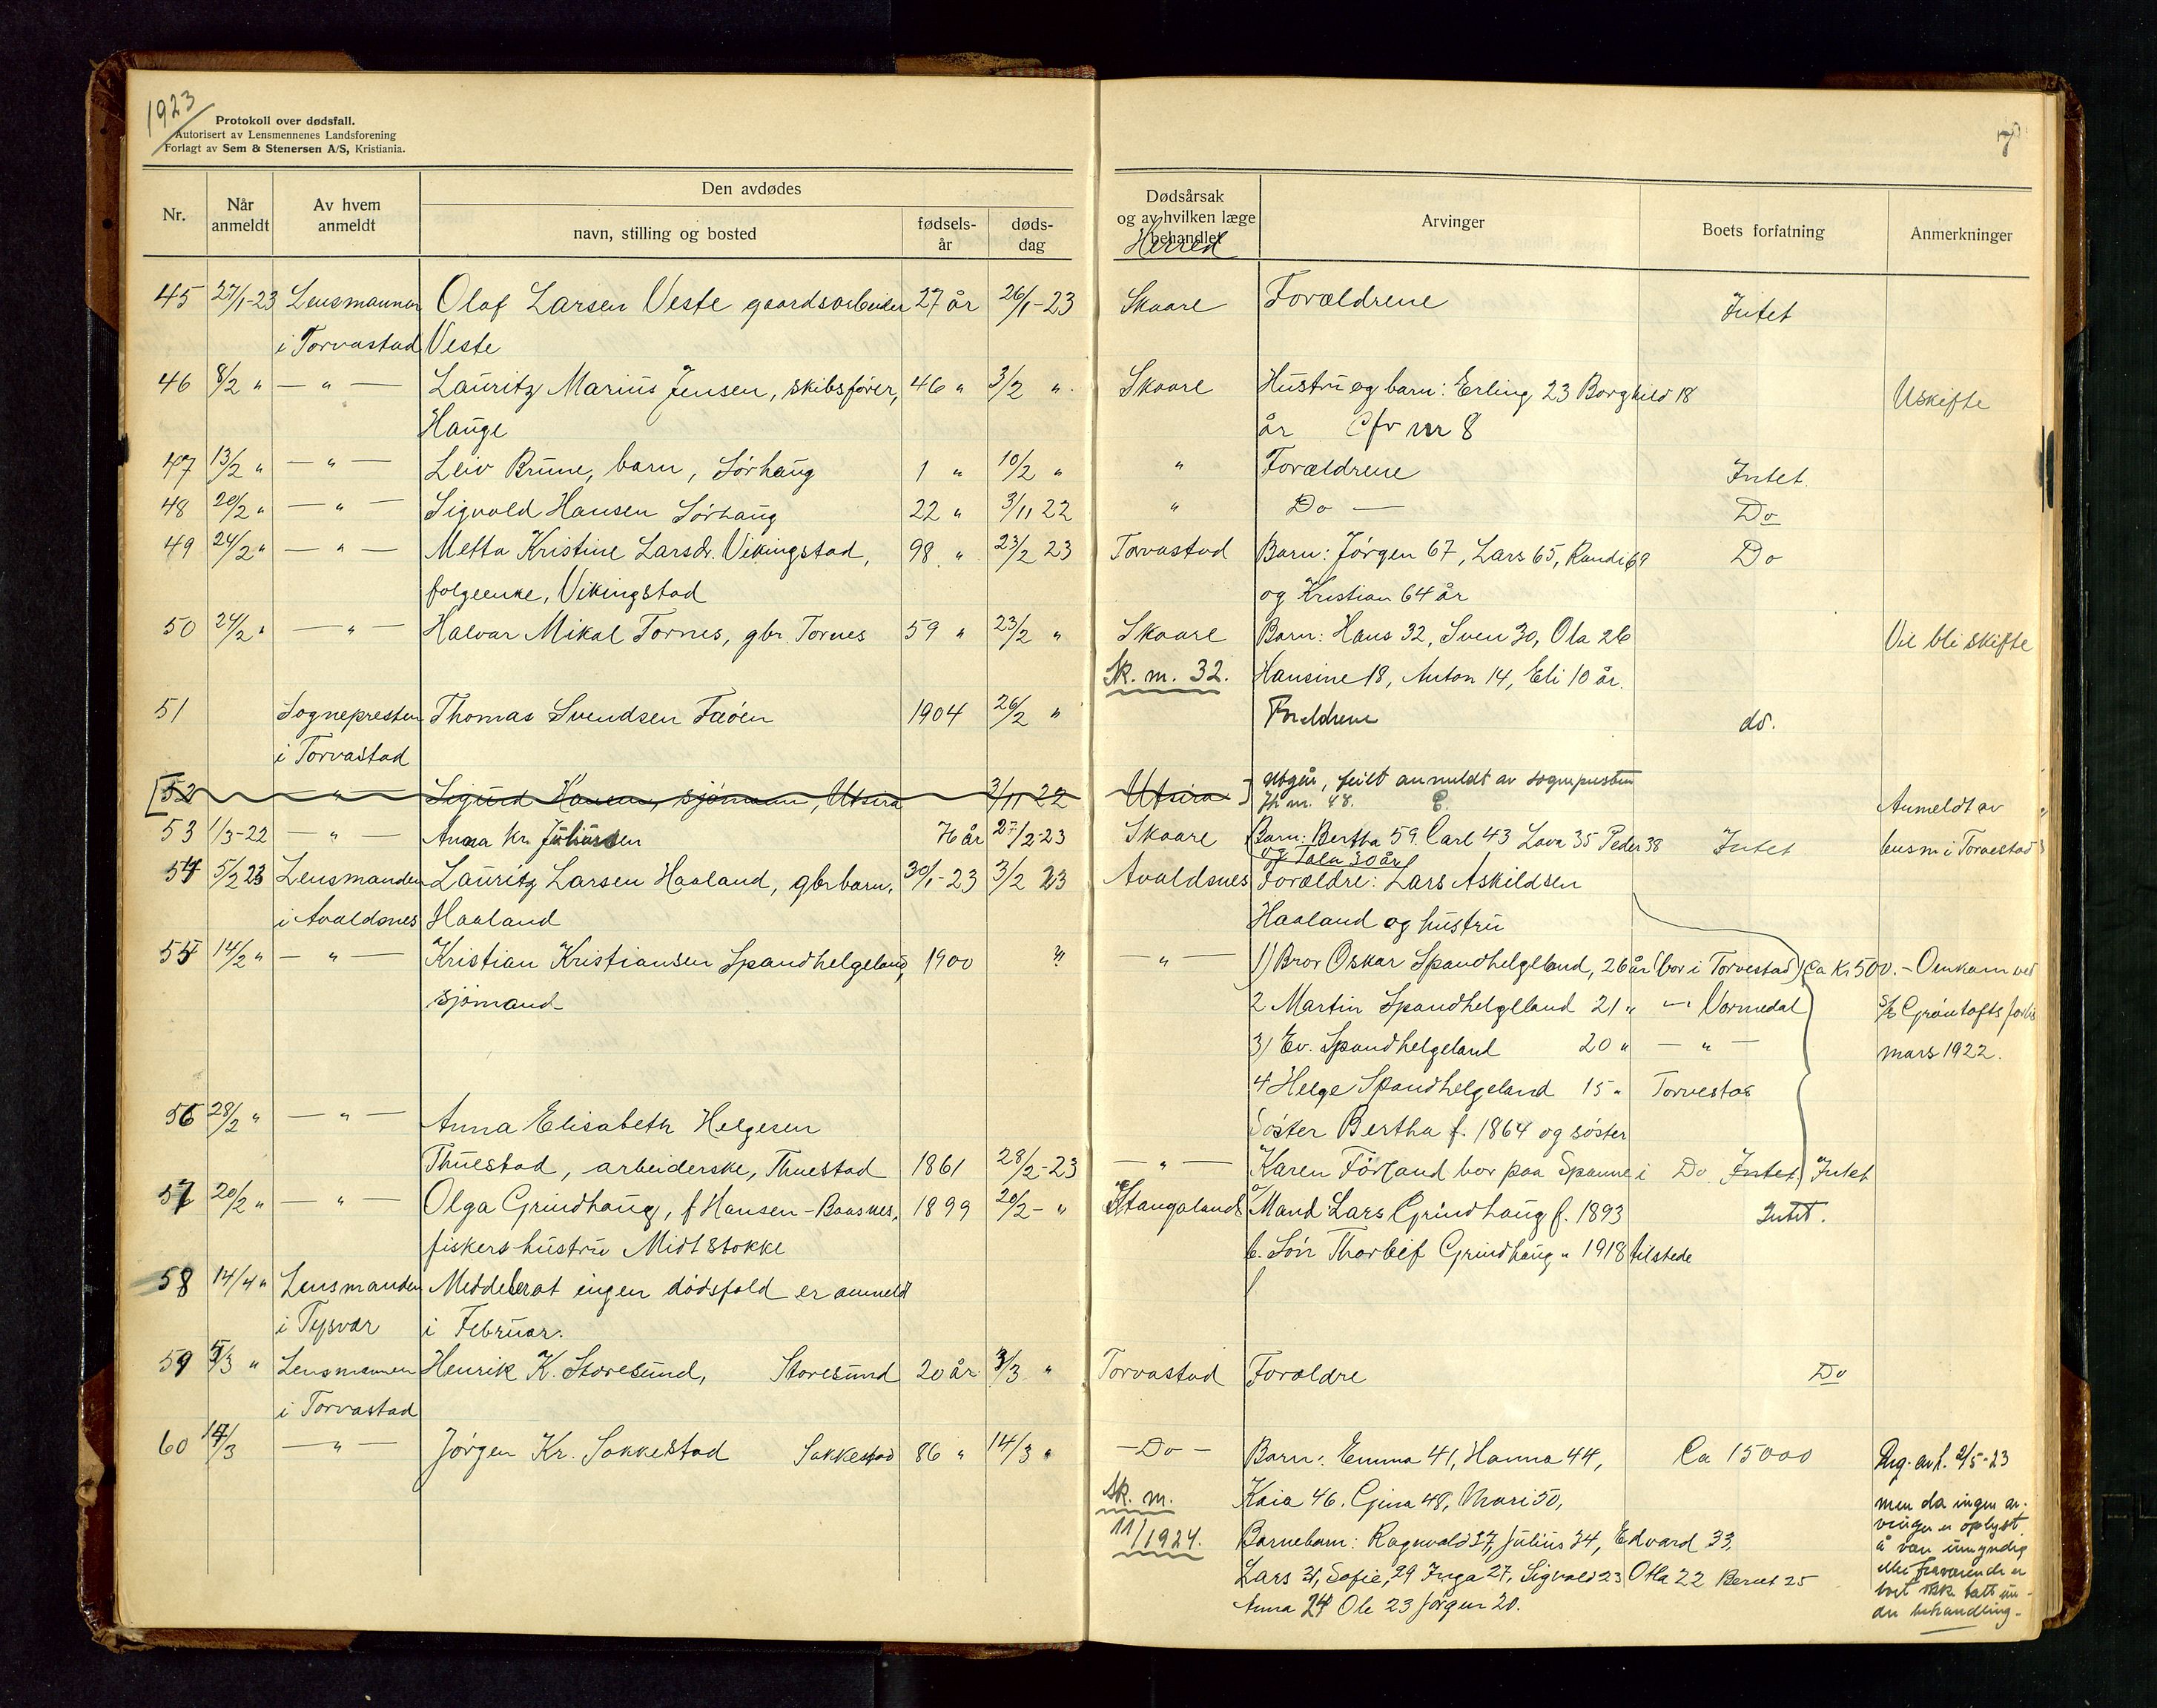 1923
Protokoll over dødsfall.
Autorisert av Lensmennenes Landsforening
Forlagt av Sem & Stenersen A/S, Kristiania.
7
Nr.
Når anmeldt
Av hvem anmeldt
Den avdødes
navn, stilling og bosted
fødsels-år
døds-dag
Dødsårsak
og av hvilken læge
behandlet
Herred
Arvinger
Boets forfatning
Anmerkninger
45 27/1-23 Lensmannen Olaf Larsen Veste gaardsarbeider 27 år 26/1-23 Skaare Forældrene Intet
i Torvastad Veste
46 8/2 " — " — Lauritz Marius Jensen, skibsfører, 46 " 3/2 " Skaare Hustru og barn: Erling 23 Borghild 18 Uskifte
Hauge år Cfr nr 8
47 13/2 " — " — Leiv Brune, barn, Sørhaug 1 " 10/2 " " Forældrene Intet.
48 20/2 " — " — Sigvald Hansen Sørhaug 22 " 3/11 22 " Do — Do
49 24/2 " — " — Metta Kristine Larsdr. Vikingstad, 98 " 23/2 23 Torvastad Barn: Jørgen 67, Lars 65, Randi 69 Do
folgeenke, Vikingstad og Kristian 64 år
50 24/2 " — " — Halvar Mikal Tornes, gbr. Tornes 59 " 23/2 " Skaare Barn: Hans 32, Sven 30, Ola 26 Vil bli skifte
Sk. m. 32. Hansine 18, Anton 14, Eli 10 år.
51 Sognepresten Thomas Svendsen Fæøen 1904 26/2 " Foreldrene do.
i Torvastad
[52 " Sigurd Hansen, sjømann, Utsira 3/11 22 Utsira ] Utgår, feilt anmeldt av sognepresten
jfr nr. 48. Anmeldt av
53 1/3-22 — " — Anna Kr. Juliussen 76 år 27/2-23 Skaare Barn: Bertha 59. Carl 43 Lava 35 Peder 38 Intet lensm i Torvestad
og 30 år
54 5/2 23 Lensmanden Lauritz Larsen Haaland, gbr barn, 30/1-23 3/2 23 Avaldsnes Forældre: Lars Askildsen
i Avaldsnes Haaland Haaland og hustru
55 14/2 " — " — Kristian Kristiansen Spandhelgeland, 1900 ? — " — 1) Bror Oskar Spandhelgeland, 26 år (bor i Torvestad) Ca Kr 500.- Omkom ved
sjømand 2 Martin Spandhelgeland 21 " —" Vormedal s/s Grøntofts forlis
3) Ev. Spandhelgeland 20 " — " — mars 1922.
4 Helge Spandhelgeland 15 " Torvestad
56 28/2 " — " — Anna Elisabeth Helgesen Søster Bertha f. 1864 og søster
Thuestad, arbeiderske, Thuestad 1861 28/2-23 — " — Karen Førland bor paa Spanne i Do Intet Intet
57 20/2 " — " — Olga Grindhaug, f Hansen - Baasnes, 1899 20/2 - " Stangaland a/ Mand Lars Grindhaug f. 1893 Intet.
fiskers hustru Midtstokke b. Søn Thorleif Grindhaug " 1918 tilstede
58 14/4 " Lensmanden Meddeler at ingen dødsfald er anmeld
i Tysvær i Februar.
59 5/3 " Lensmannen Henrik K. Storesund, Storesund 20 år 3/3 " Torvastad Forældre Do
i Torvastad
60 17/3 — " — Jørgen Kr. Sakkestad Sakkestad 86 " 14/3 " — Do — Barn: Emma 41, Hanna 44, Ca 15000 Reg. avh. 2/5-23
Sk. m. Kaia 46. Gina 48, Mari 50, men da ingen ar-
11/1924. Barnebarn: Ragnvald 37, Julius 34, Edvard 33, vinger er oplyst
Lars 31, Sofie, 29 Inga 27, Sigvald 23 Otla 22 Bernt 25 å være umyndig
Anna 24 Ole 23 Jørgen 20. eller fraværende er
boet ikke tatt un-
der behandling.